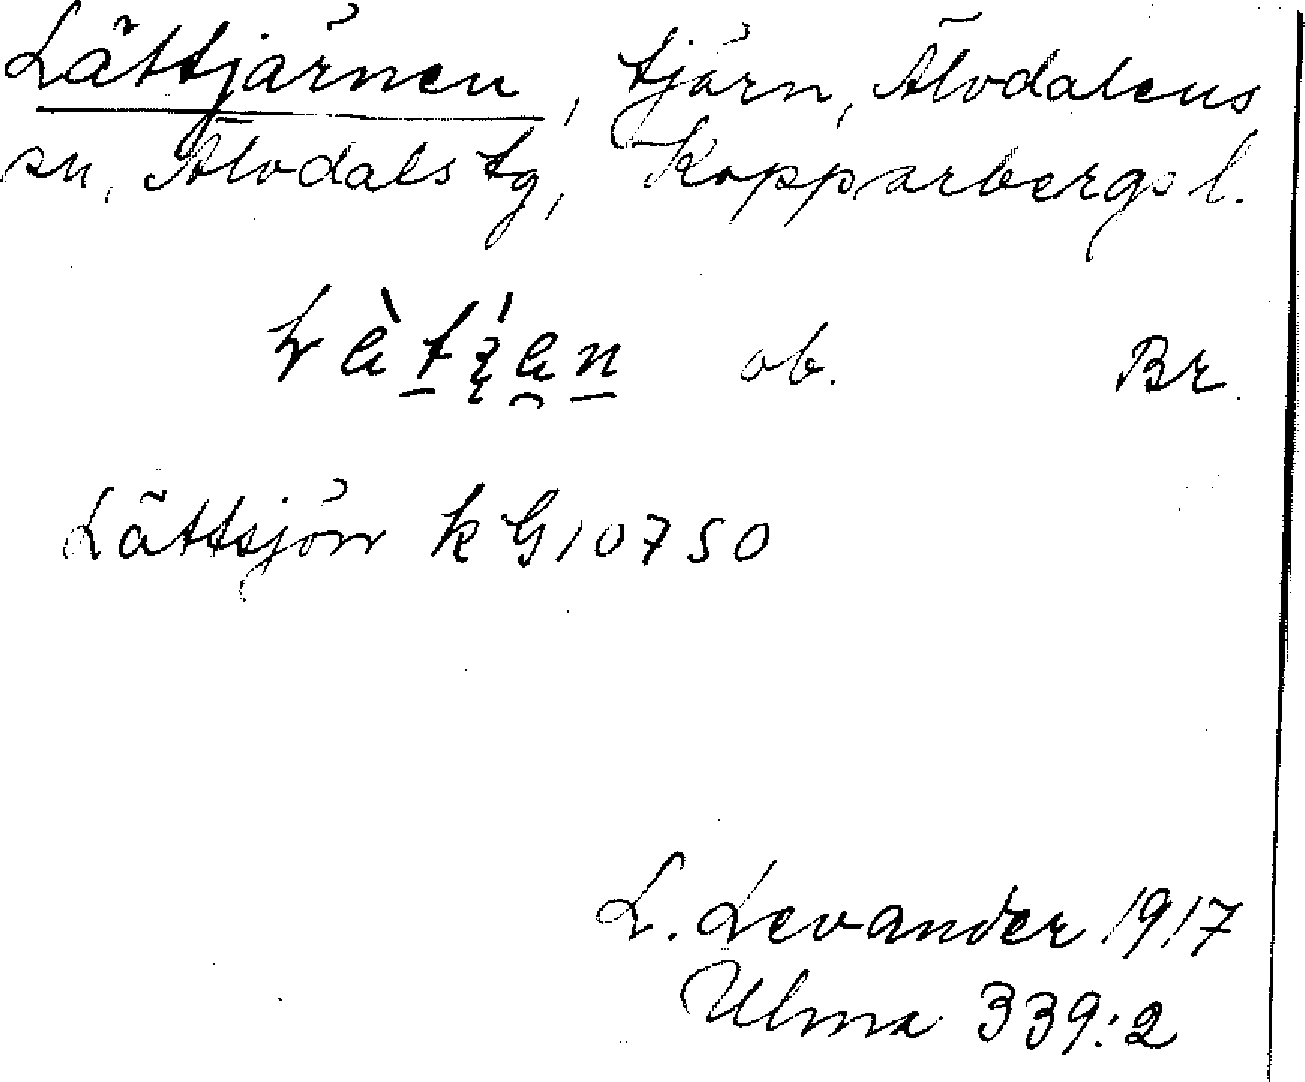 Lättjärnen, tjärn, Älvdalens
sn, Älvdals tg, Kopparbergs l.
ob. Br.
Lättsjön kG10750
L. Levander 1917
Ulma 339:2